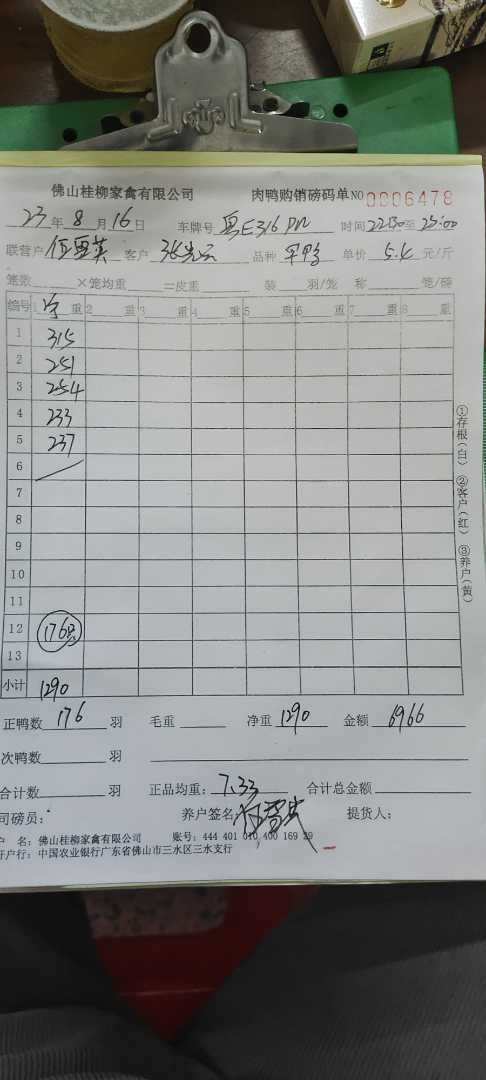 佛山桂柳家禽有限公司 肉鸭购销磅码单 NO 0006478
23年8月16日 车牌号 粤E316 时间 22:50至25:00
联营户 客户 品种 单价 5.4 元/斤
笼数 ×笼均重 =皮重 装 羽/笼 称 笼/磅
编号 1 重 2 重 3 重 4 重 5 重 6 重 7 重 8 重
1 315
2 251
3 254
4 233
5 237
6
7
8
9
10
11
12 176只
13
小计 1290
正鸭数 176 羽 毛重 净重 1290 金额 6966
次鸭数 羽
合计数 羽 正品均重: 7.33 合计总金额
司磅员: 养户签名: 提货人:
户 名: 佛山桂柳家禽有限公司 账号: 444 401 010 400 169 29
开户行: 中国农业银行广东省佛山市三水区三水支行
①存根(白) ②客户(红) ③养户(黄)